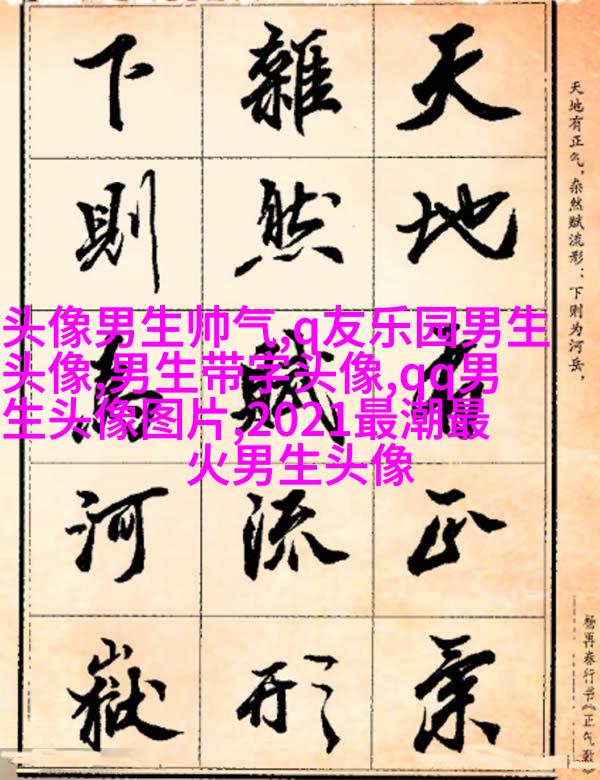 天地有正气，杂然赋流形：下则为河岳，
天地有正氣
雜然賦流形
下則為河嶽
杨再春行书《正气歌》
头像男生帅气,q友乐园男生
头像,男生带字头像,qq男
生头像图片,2021最潮最
火男生头像